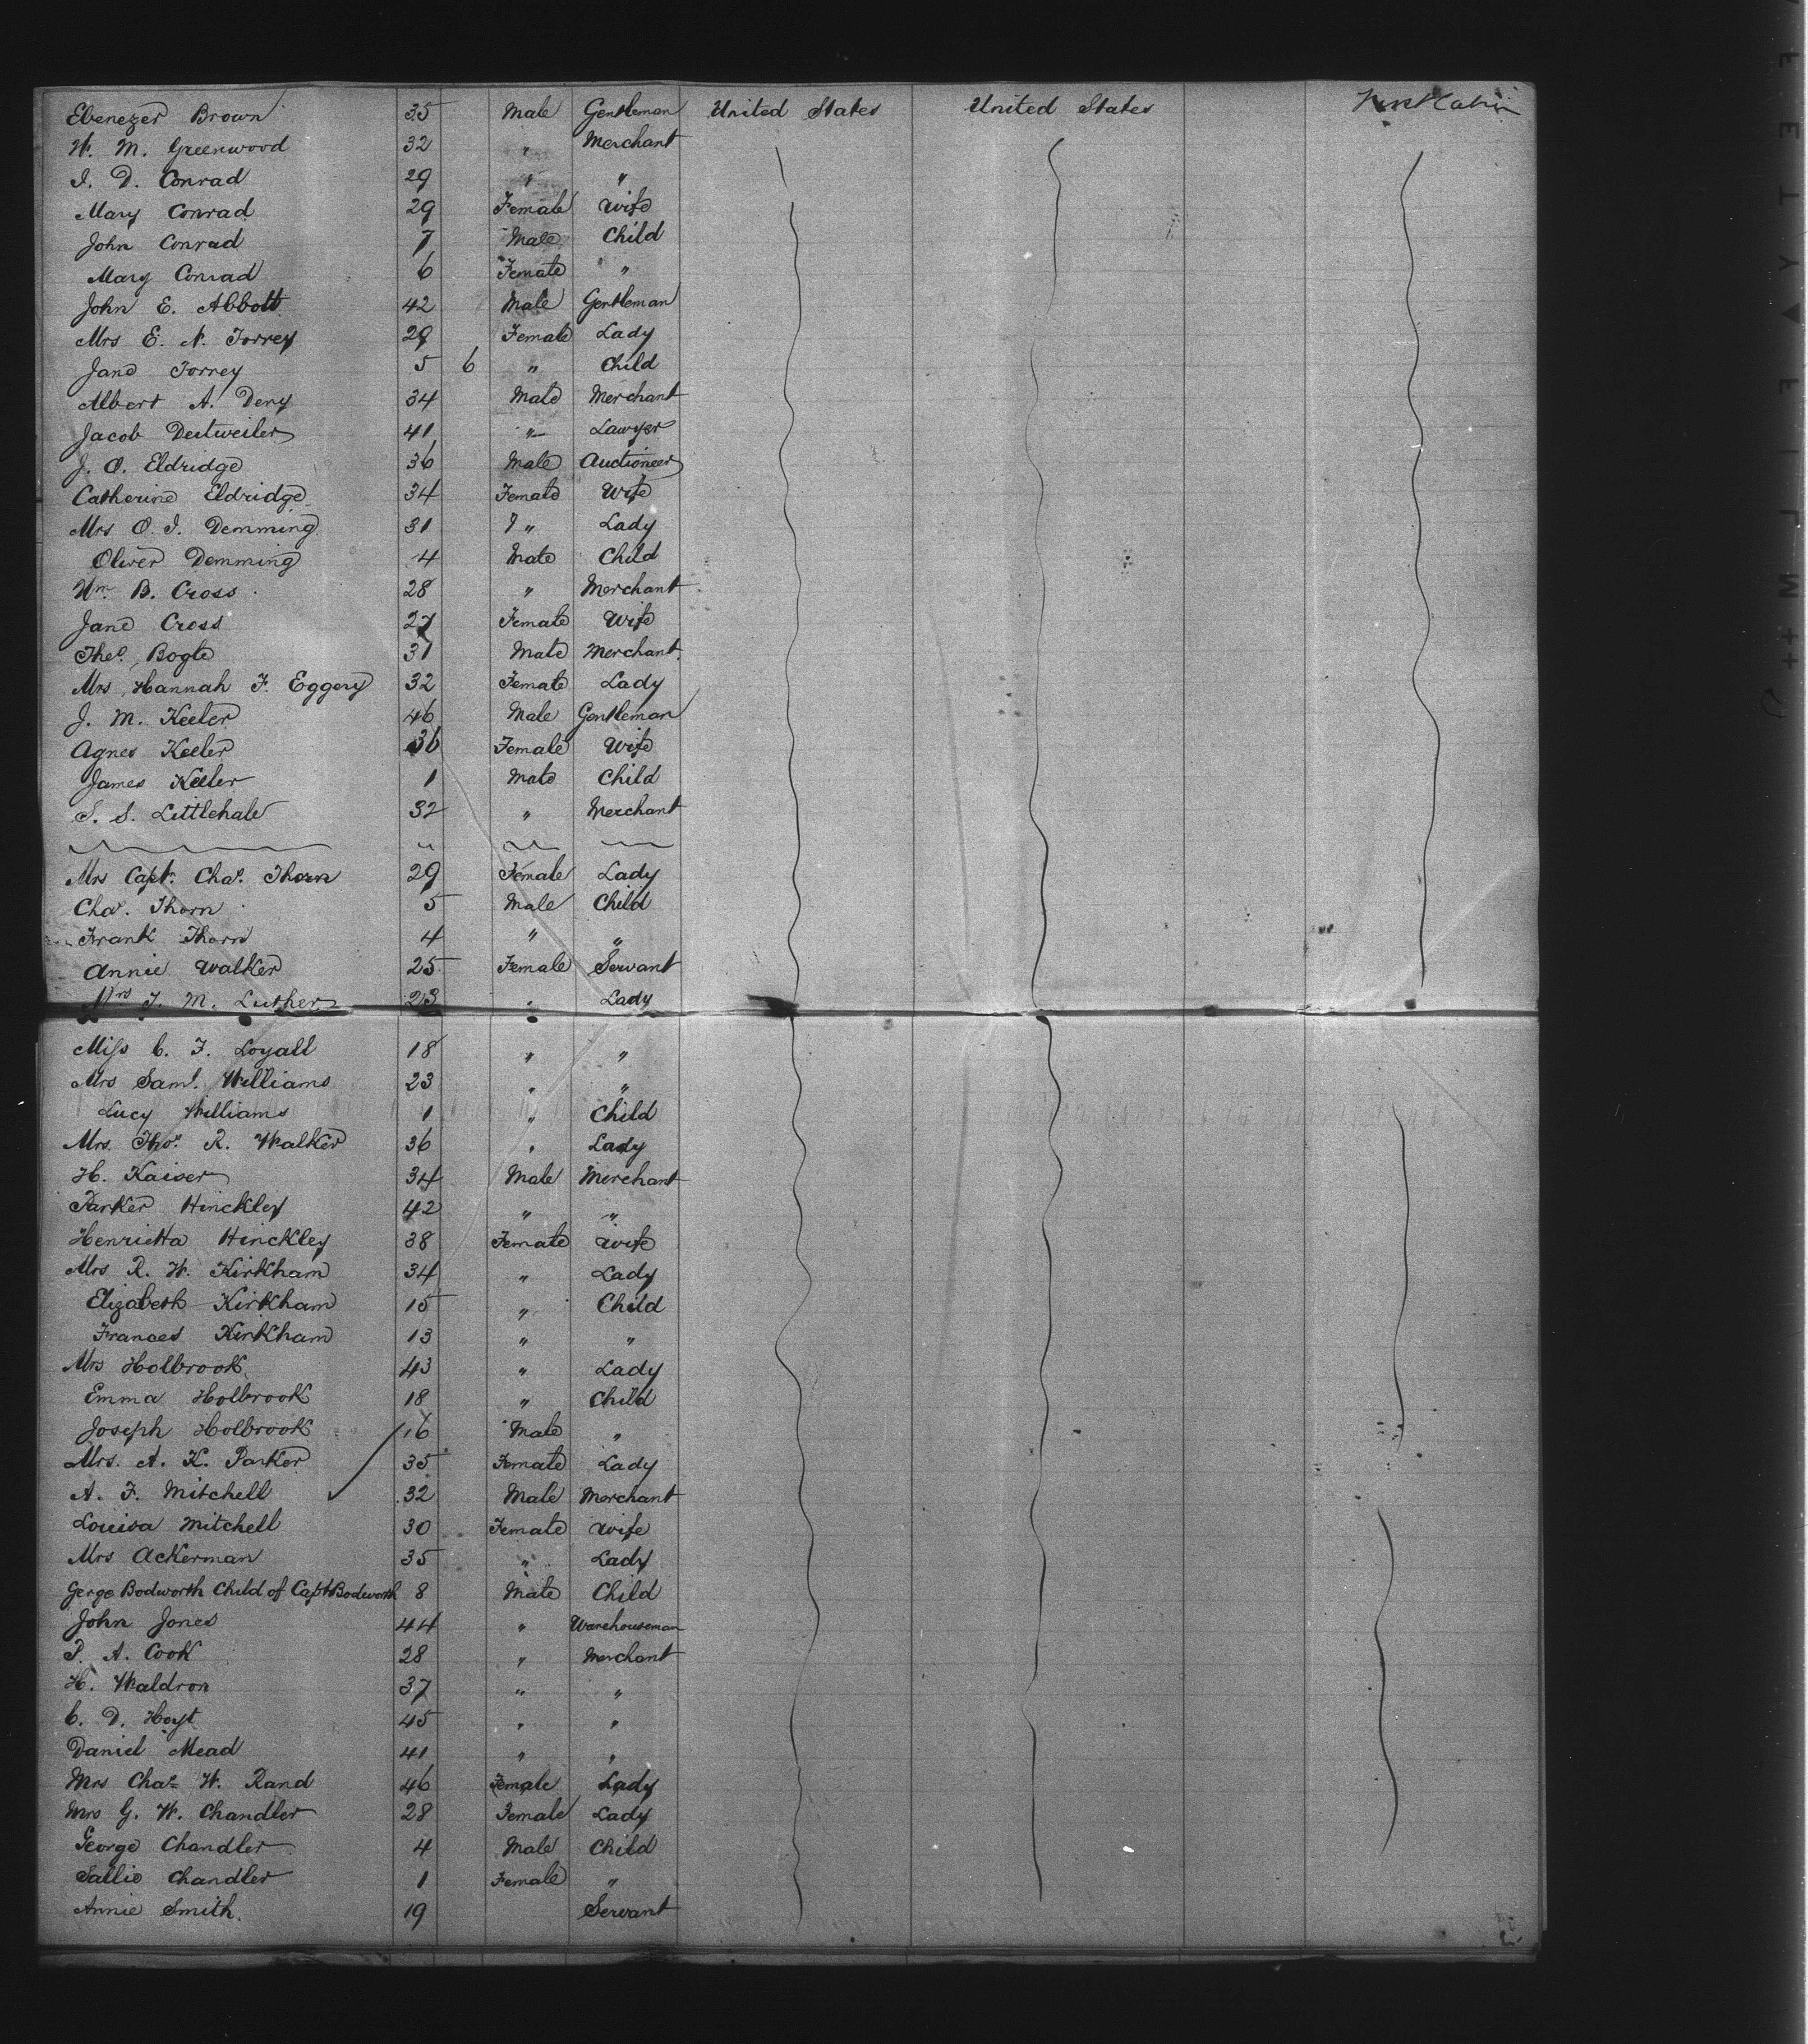 Ebenezer Brown 35 Male Gentleman United States United States First Cabin
W. M. Greenwood 32 " Merchant
I. D. Conrad 29 " "
Mary Conrad 29 Female Wife
John Conrad 7 Male Child
Mary Conrad 6 Female "
John E. Abbott 42 Male Gentleman
Mrs E. N. Torrey 29 Female Lady
Jane Torrey 5 6 " Child
Albert A. Deny 34 Male Merchant
Jacob Deitweiler 41 " Lawyer
J. O. Eldridge 36 Male Auctioneer
Catherine Eldridge 34 Female Wife
Mrs O. I. Demming 31 " Lady
Oliver Demming 4 Male Child
Wm. B. Cross 28 " Merchant
Jane Cross 27 Female Wife
Theo. Bogle 31 Male Merchant
Mrs Hannah F. Eggery 32 Female Lady
J. M. Keeler 46 Male Gentleman
Agnes Keeler 36 Female Wife
James Keeler 1 Male Child
S. S. Littlehale 32 " Merchant
Mrs Capt. Chas. Thorn 29 Female Lady
Chas. Thorn 5 Male Child
Frank Thorn 4 " "
Annie Walker 25 Female Servant
Mrs T. M. Luther 23 " Lady
Miss C. F. Loyall 18 " "
Mrs Saml. Williams 23 " "
Lucy Williams 1 " Child
Mrs. Thos. R. Walker 36 " Lady
H. Kaiser 34 Male Merchant
Parker Hinckley 42 " "
Henrietta Hinckley 38 Female Wife
Mrs R. W. Kirkham 34 " Lady
Elizabeth Kirkham 15 " Child
Frances Kirkham 13 " "
Mrs Holbrook 43 " Lady
Emma Holbrook 18 " Child
Joseph Holbrook 16 Male "
Mrs. A. K. Parker 35 Female Lady
A. F. Mitchell 32 Male Merchant
Louisa Mitchell 30 Female Wife
Mrs Ackerman 35 " Lady
Gerge Bodworth Child of Capt Bodworth 8 Male Child
John Jones 44 " Warehouseman
P. A. Cook 28 " Merchant
H. Waldron 37 " "
C. D. Hoyt 45 " "
Daniel Mead 41 " "
Mrs Chas. W. Rand 46 Female Lady
Mrs G. W. Chandler 28 Female Lady
George Chandler 4 Male Child
Sallie Chandler 1 Female "
Annie Smith 19 Servant